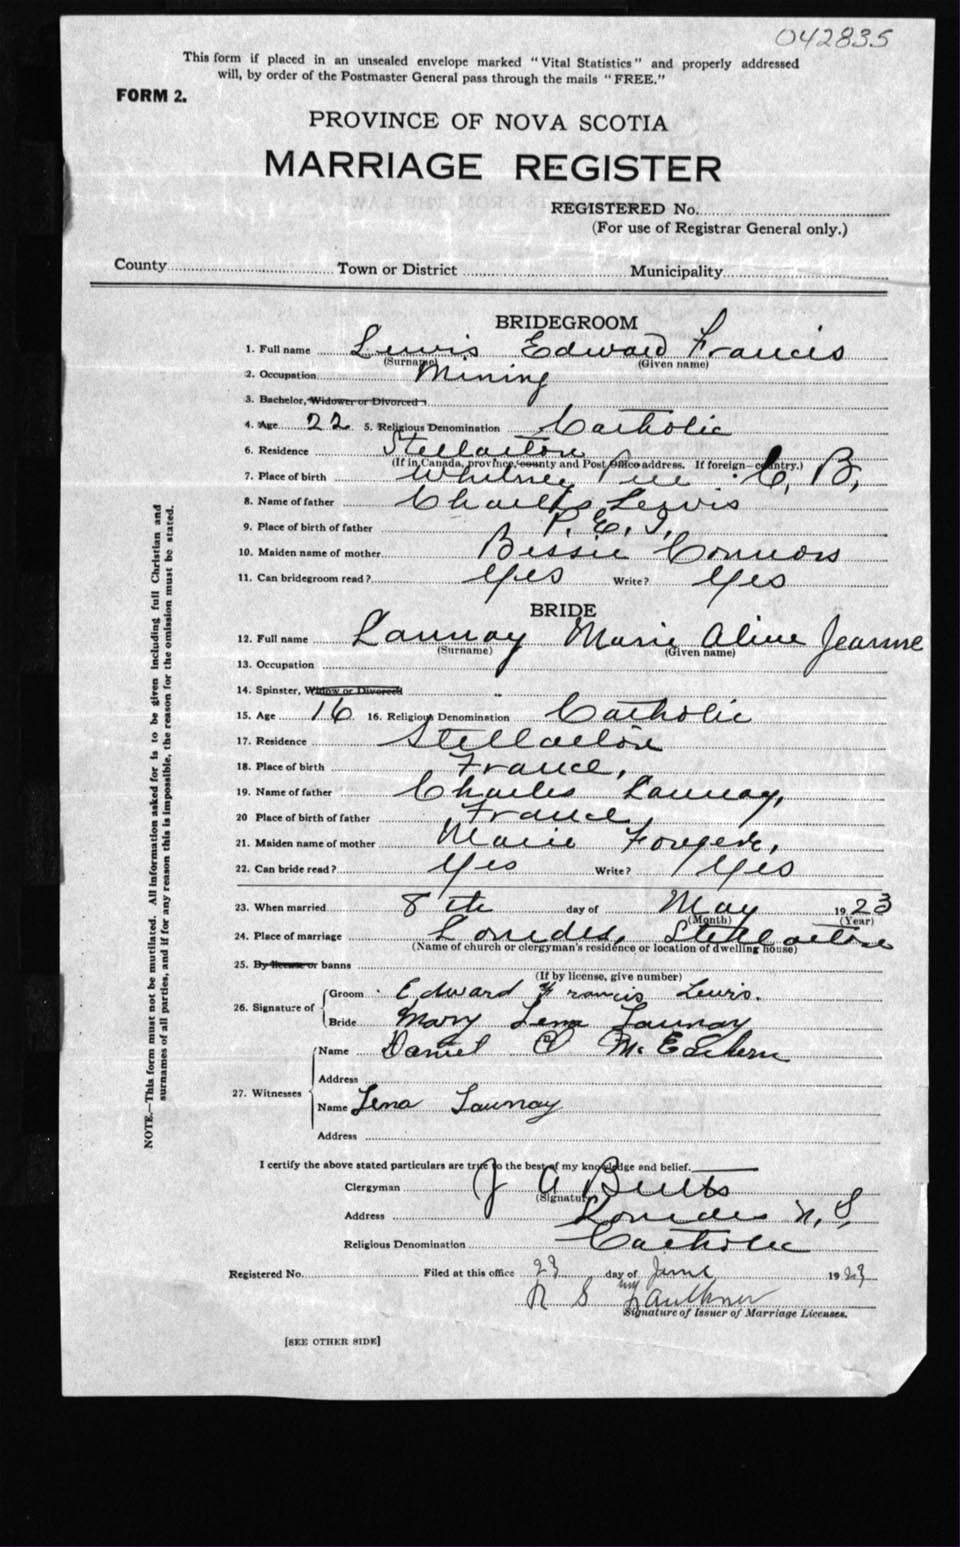 042835
This form if placed in an unsealed envelope marked "Vital Statistics" and properly addressed
will, by order of the Postmaster General pass through the mails "FREE."
FORM 2.
PROVINCE OF NOVA SCOTIA
MARRIAGE REGISTER
REGISTERED No.
(For use of Registrar General only.)
County Town or District Municipality
BRIDEGROOM
1. Full name Lewis Edward Francis
(Surname) (Given name)
2. Occupation Mining
3. Bachelor, Widower or Divorced
4. Age 22 5. Religious Denomination Catholic
6. Residence Stellarton
(If in Canada, province, county and Post Office address. If foreign—country.)
7. Place of birth Whitney Pier C. B.
8. Name of father Charles Lewis
9. Place of birth of father P. E. I.
10. Maiden name of mother Bessie Connors
11. Can bridegroom read? Yes Write? Yes
BRIDE
12. Full name Launay Marie Aline Jeanne
(Surname) (Given name)
13. Occupation
14. Spinster, Widow or Divorced
15. Age 16 16. Religious Denomination Catholic
17. Residence Stellarton
18. Place of birth France,
19. Name of father Charles Launay,
20 Place of birth of father France,
21. Maiden name of mother Marie
22. Can bride read? Yes Write? Yes
23. When married 8th day of May 1923
(Month) (Year)
24. Place of marriage Lourdes, Stellarton
(Name of church or clergyman's residence or location of dwelling house)
25. By license or banns
(If by license, give number)
26. Signature of
Groom Edward Francis Lewis.
Bride Mary Lena Launay
27. Witnesses
Name Daniel McEachern
Address
Name Lena Launay
Address
I certify the above stated particulars are true to the best of my knowledge and belief.
Clergyman J A Butts
(Signature)
Address Lourdes N. S.
Religious Denomination Catholic
Registered No. Filed at this office 23 day of June 1923
R S Faulkner
Signature of Issuer of Marriage Licenses.
[SEE OTHER SIDE]
NOTE.—This form must not be mutilated. All information asked for is to be given including full Christian and
surnames of all parties, and if for any reason this is impossible, the reason for the omission must be stated.